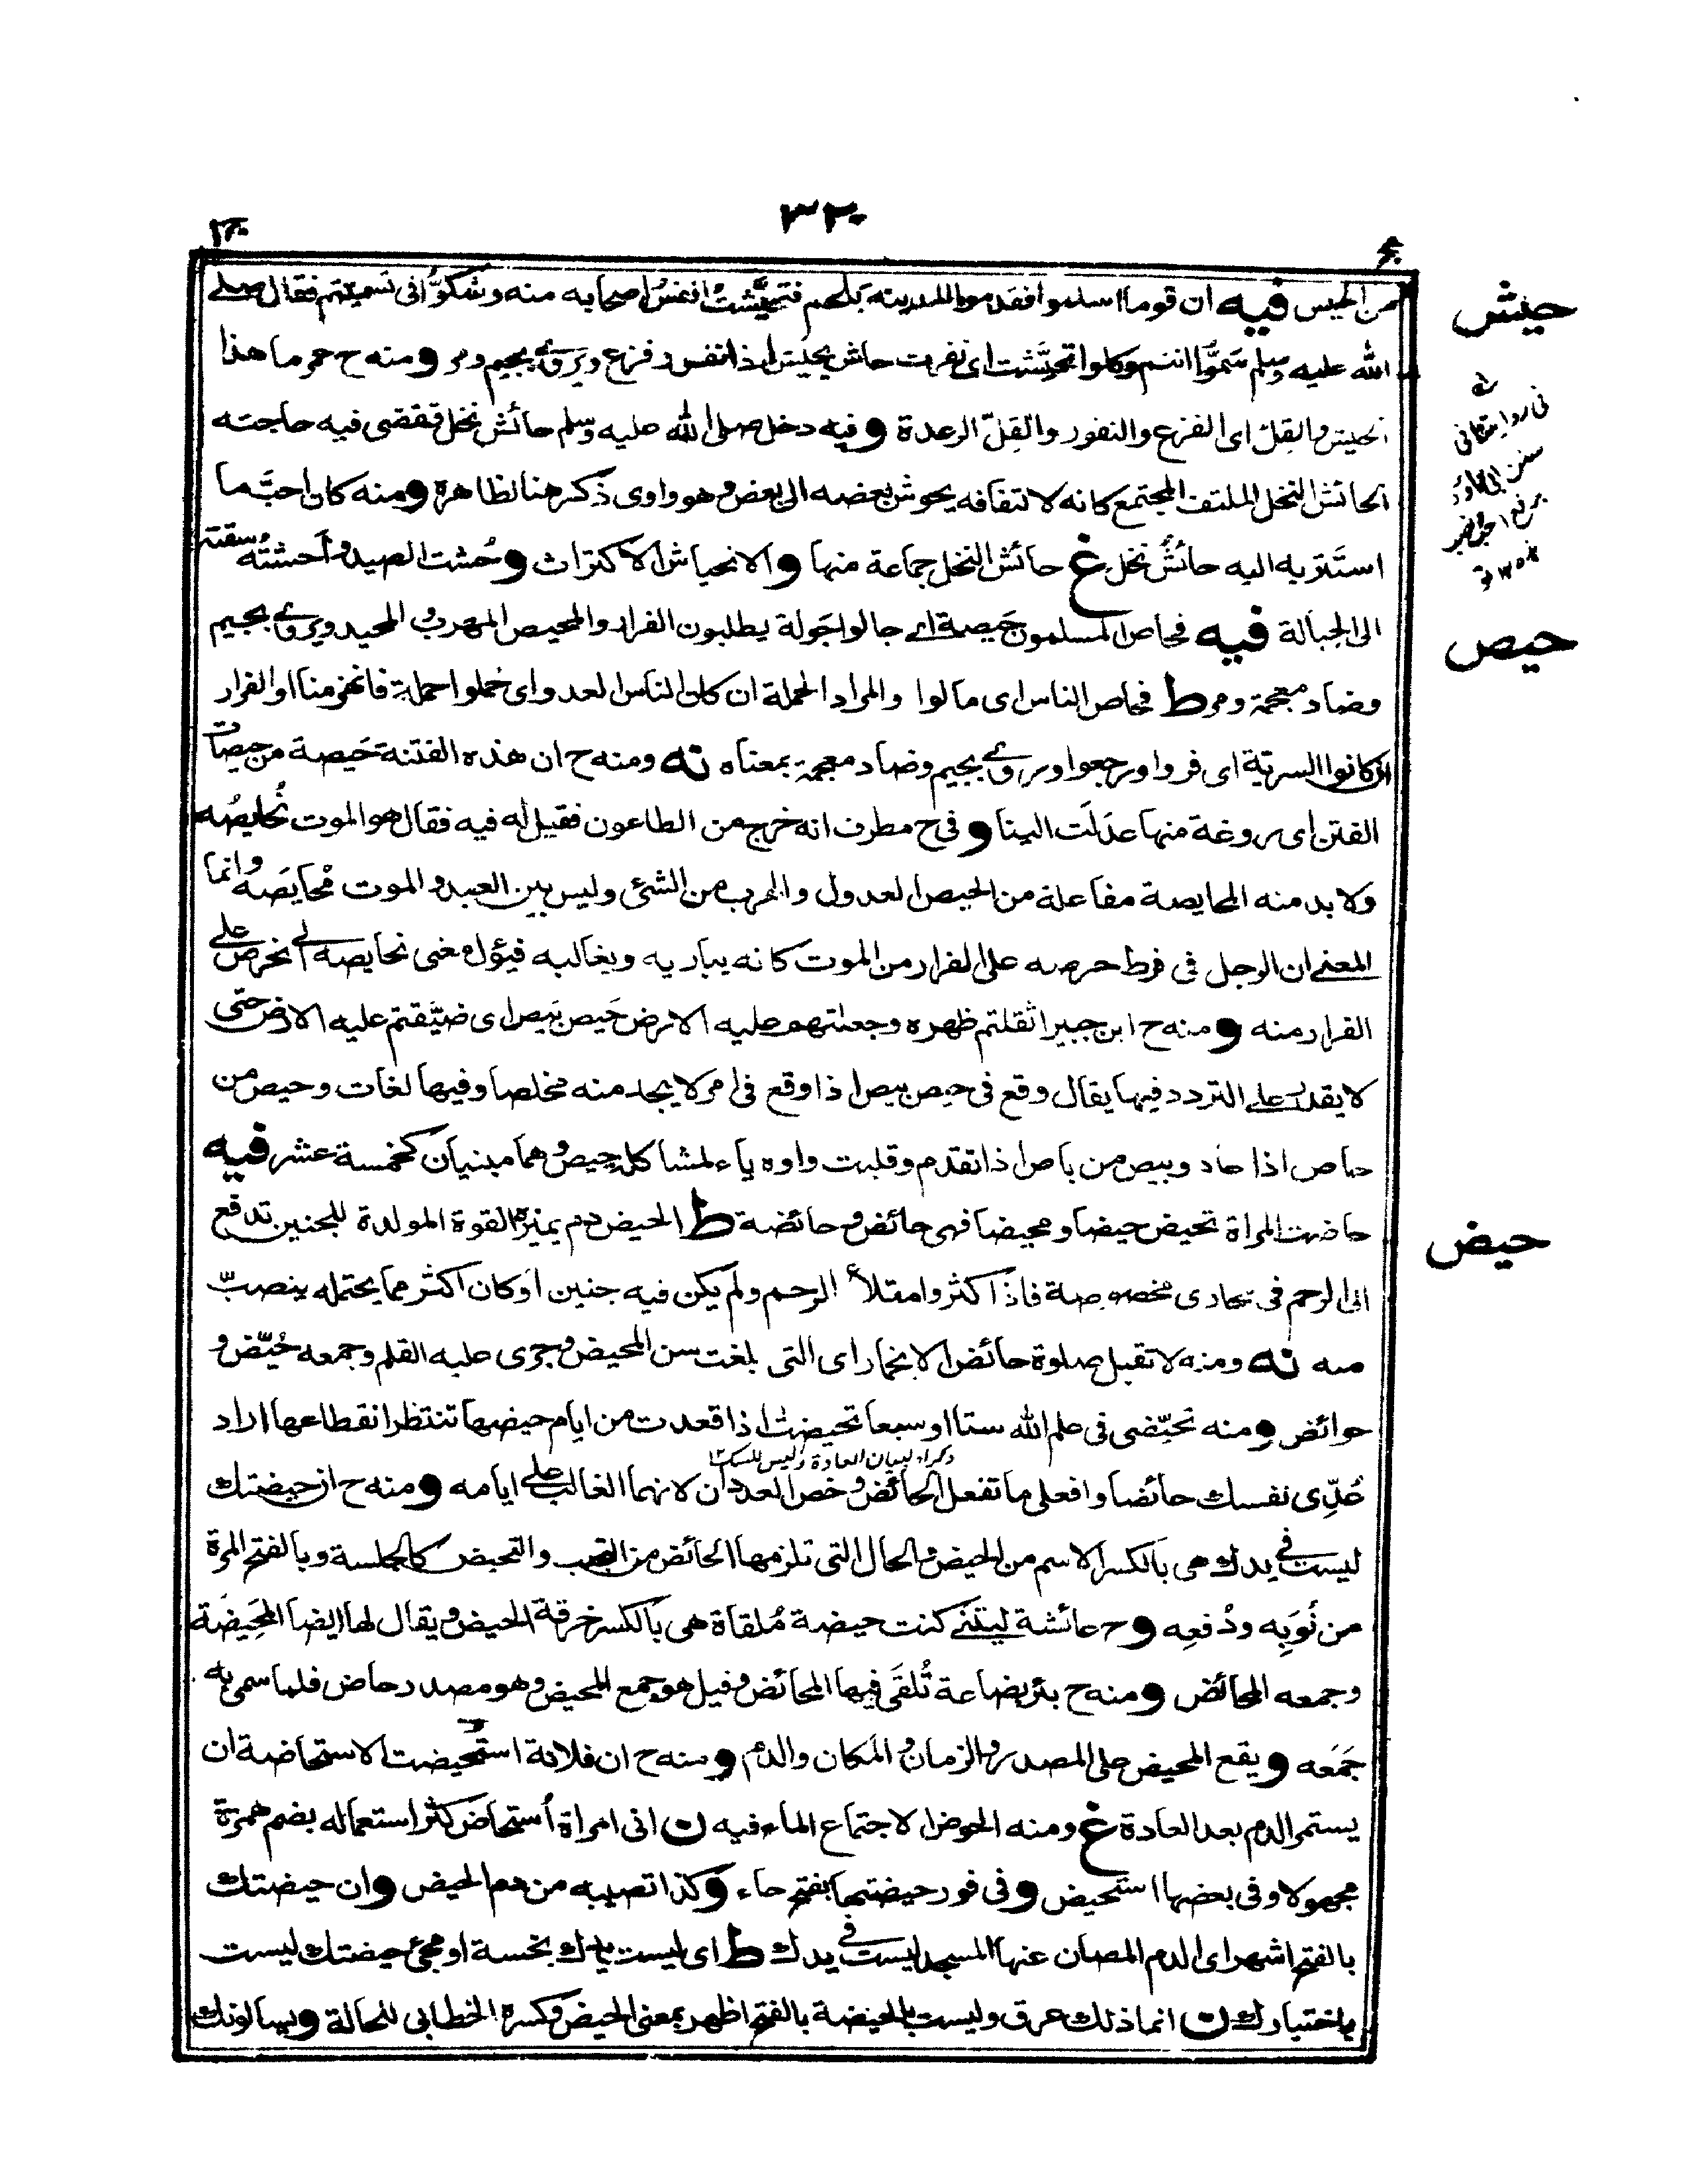 ٣٢٠
حيش
من الحيس فيه ان قوما اسلموا فقدموا المدينة بلحم فتحيَّشت انفسُ اصحابه منه وشكوّا فى تسميتهم فقال صلى
الله عليه وسلم سَمُّوا انتم وكلوا تحيَّشت اى نفرت حاش يحيش اذا نفس وفزع ويروى بجيم ومر ومنه ح عمر ما هذا
الحيش والقِلّ اى الفزع والنفور والقِلّ الرعدة وفيه دخل صلى الله عليه وسلم حائش نخل فقضى فيه حاجته
الحائش النخل الملتف المجتمع كانه لالتفافه يحوش بعضه الى بعض وهو واوى ذكر هنا لظاهره ومنه كان احبَّ ما
استَتَر به اليه حائشُ نخل غ حائش النخل جماعة منها والانحياش الاكتراث وحُشت الصيد واَحشتُه سقته
حيص
الى الحِبالة فيه فحاص المسلمون حَيصة اى جالوا جَولة يطلبون الفرار والمحيص المهرب والمحيد ويروى بجيم
وضاد معجمة ومر ط فحاص الناس اى مالوا والمراد الحملة ان كان الناس العدو اى حملوا حملة فانهزمنا او الفرار
ان كانوا السرية اى فروا ورجعوا وروى بجيم وضاد معجمة بمعناه نه ومنه ح ان هذه الفتنة حَيصة من حيصات
الفتن اى روغة منها عدَلَت الينا وفى ح مطرف انه خرج من الطاعون فقيل له فيه فقال هو الموت نُحايصُه
ولا بد منه المحايصة مفاعلة من الحيص العدول والهرب من الشئ وليس بين العبد والموت مُحايَصة وانما
المعنى ان الرجل فى فرط حرصه على الفرار من الموت كانه يباريه ويغالبه فيؤل معنى نحايصه الى نحرص على
الفرار منه ومنه ح ابن جبير اثقلتم ظهره وجعلتهم عليه الارض حَيص بَيص اى ضيَّقتم عليه الارض حتى
لا يقدر على التردد فيها يقال وقع فى حيص بيص اذا وقع فى امر لا يجد منه مخلصا وفيها لغات وحيص من
حاص اذا حاد وبيص من باص اذا تقدم وقلبت واوه ياء لمشاكلة حيص وهما مبنيان كخمسة عشر فيه
حيض
حاضت المراة تحيض حيضا ومحيضا فهى حائض وحائضة ط الحيض دم يميزه القوة المولدة للجنين تدفع
الى الرحم فى مجارى مخصوصة فاذا كثر وامتلأ الرحم ولم يكن فيه جنين او كان اكثر مما يحتمله ينصبّ
منه نه ومنه لا تقبل صلوة حائض الا بخمار اى التى بلغت سن المحيض وجرى عليه القلم وجمعه حُيَّض و
حوائض ومنه تحيّضى فى علم الله ستا او سبعا تحيضت اذا قعدت من ايام حيضها تنتظر انقطاعها اراد
عُدِّى نفسك حائضا وافعلى ما تفعل الحائض وخص العددان لانهما الغالب على ايامه ومنه ح ان حيضتك
ليست فى يدك هى بالكسر الاسم من الحيض والحال التى تلزمها الحائض من التجنب والتحيض كالجلسة وبالفتح المرة
من نُوَبِه ودُفعِه وح عائشة ليتنى كنت حيضة مُلقاة هى بالكسر خرقة الحيض ويقال لها ايضا المحِيضَة
وجمعه المحائض ومنه ح بئر بضاعة تُلقَى فيها المحائض وقيل هو جمع المحيض وهو مصدر حاض فلما سمى به
جَمَعه ويقع المحيض على المصدر والزمان والمكان والدم ومنه ح ان فلانة استُحيضت الاستحاضة ان
يستمر الدم بعد العادة غ ومنه الحوض لاجتماع الماء فيه ن انى امراة اُستحاض كثر استعماله بضم همزة
مجهولا وفى بعضها استحيض وفى فور حيضتها بفتح حاء وكذا تصيبه من دم الحيض وان حيضتك
بالفتح اشهر اى الدم المصان عنها المسجد ليست فى يدك ط اى ليست يدك نجسة او مجئ حيضتك ليست
باختيارك ن انما ذلك عرق وليست بالحيضة بالفتح اظهر بمعنى الحيض وكسره الخطابى للحالة ويسالونك